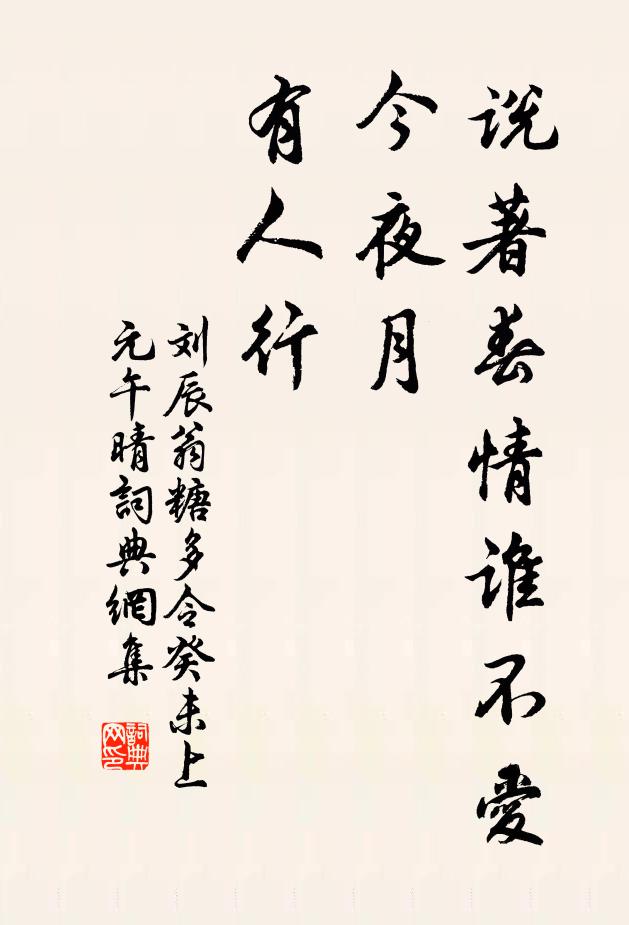 说著春情谁不爱
今夜月
有人行
刘辰翁糖多令癸未上
元午晴詞典網集
詞典
网印